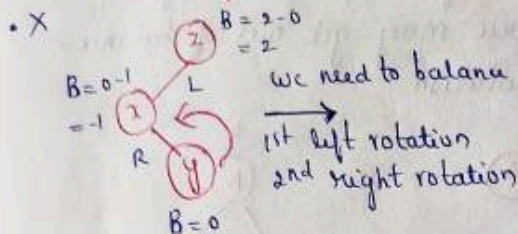 • X
B = 2-0
= 2
z
B = 0-1
= -1
x
L
R
y
B = 0
we need to balance
1st left rotation
2nd right rotation